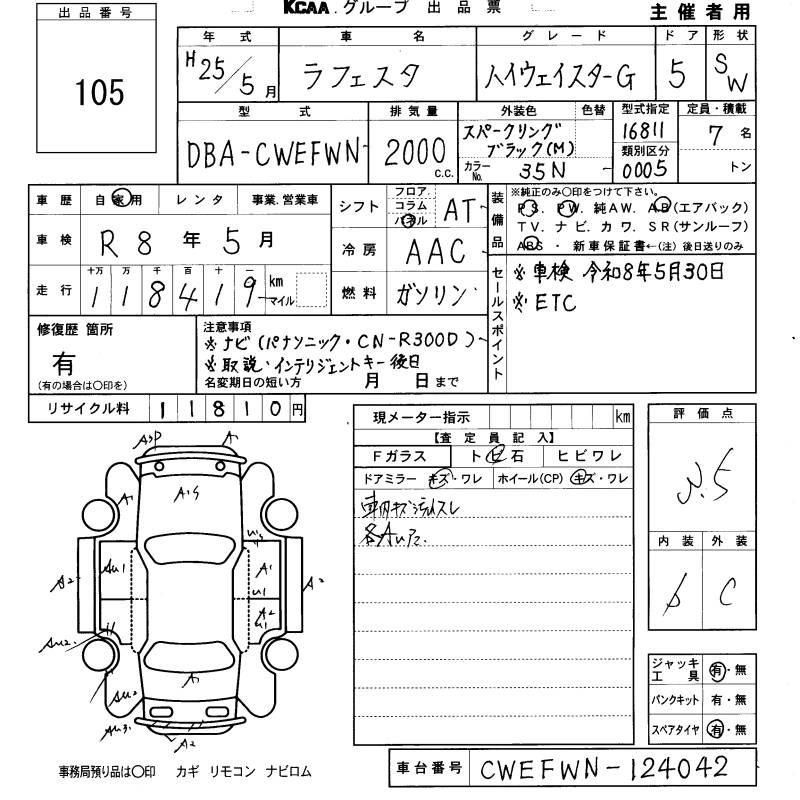 出品番号
105
KCAA グループ 出品票
主催者用
年式 車名 グレード ドア 形状
H25/5月 ラフェスタ ハイウェイスターG 5 SW
型式 排気量 外装色 色替 型式指定 定員・積載
DBA-CWEFWN 2000 c.c. スパークリングブラック(M) 16811 7名
カラーNo. 35N 類別区分 0005 トン
車歴 自家用 レンタ 事業.営業車
車検 R8年5月
走行 十万 万 千 百 十 一
118419 km マイル
シフト フロア コラム パネル AT
冷房 AAC
燃料 ガソリン
装備品 ※純正のみ〇印をつけて下さい。
PS. PW. 純AW. AB(エアバック)
TV. ナビ. カワ. SR(サンルーフ)
ABS ・ 新車保証書←(注) 後日送りのみ
セールスポイント
※車検 令和8年5月30日
※ETC
修復歴 箇所
有
(有の場合は〇印を)
注意事項
※ナビ(パナソニック・CN-R300D)
※取説・インテリジェントキー後日
名変期日の短い方 月 日まで
リサイクル料 11810円
現メーター指示 km
【査定員記入】
Fガラス トビ石 ヒビワレ
ドアミラー キズ・ワレ ホイール(CP) キズ・ワレ
車内キズ汚れスレ
各AUア2.
評価点
内装 外装
b C
A3P A
A.S
A1
AU1 A1
U1
A2 A2 A2
U1
AU2.
AU2
A1
AU3.
A2
ジャッキ工具 有・無
パンクキット 有・無
スペアタイヤ 有・無
事務局預り品は〇印 カギ リモコン ナビロム
車台番号 CWEFWN-124042